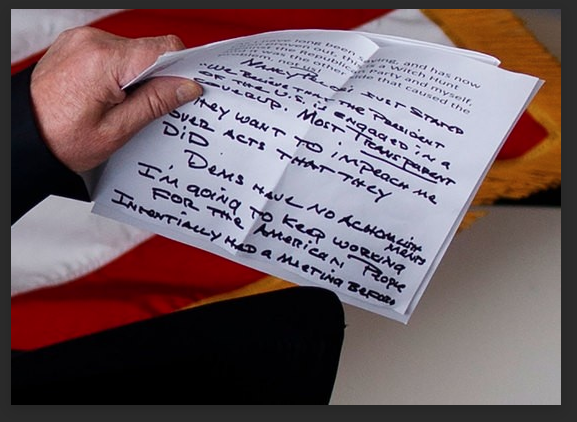 have long been saying, and has now
proven out, this is a Witch Hunt
the Republican Party and myself.
it was the other side that caused the
NANCY PELOSI JUST STATED
"WE BELIEVE THAT THE PRESIDENT
OF THE U.S. IS ENGAGED IN A
COVERUP". MOST TRANSPARENT
THEY WANT TO IMPEACH ME
OVER ACTS THAT THEY
DID
DEMS HAVE NO ACHOMLISHMENTS
I'M GOING TO KEEP WORKING
FOR THE AMERICAN PEOPLE
INTENTIALLY HAD A MEETING BEFORE